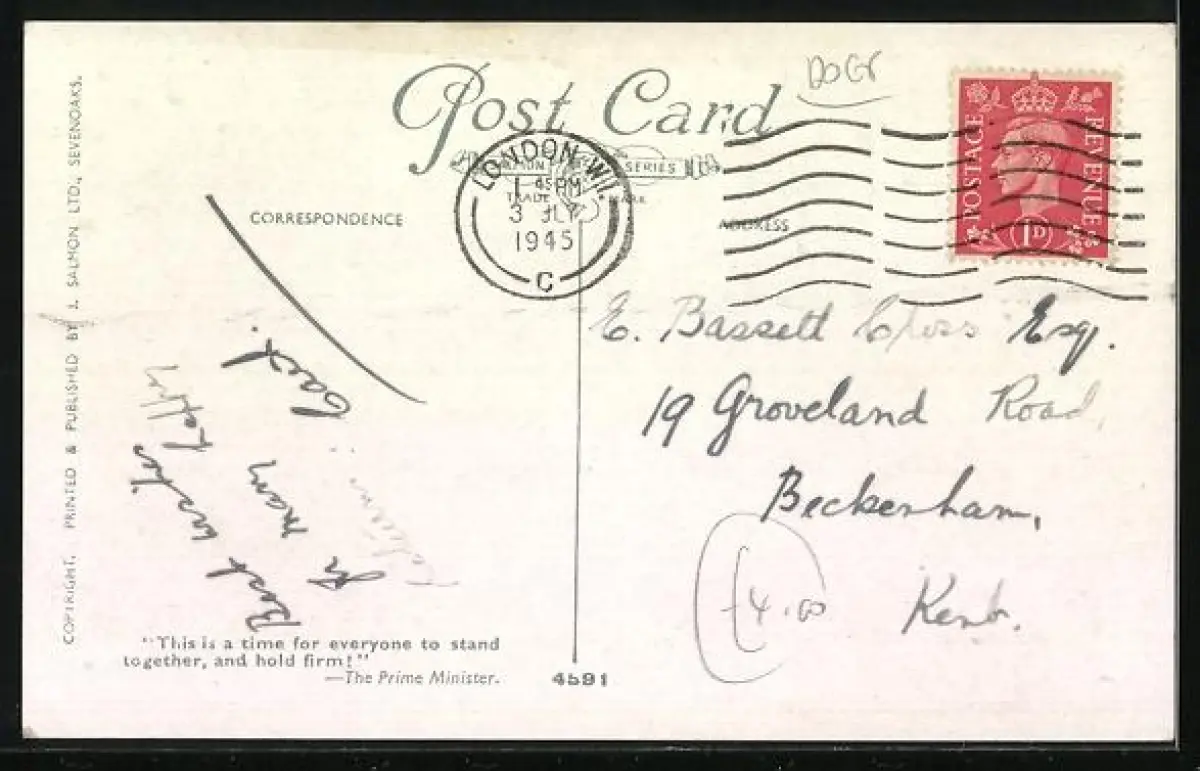 DOGS
Post Card
SALMON SERIES
TRADE MARK
LONDON. W.1.
1 45 PM
3 JLY
1945
C
POSTAGE REVENUE
1D
CORRESPONDENCE
ADDRESS
COPYRIGHT. PRINTED & PUBLISHED BY J. SALMON LTD., SEVENOAKS.
Best wishes
for many
E. Bassett Esq.
19 Groveland Road,
Beckenham,
Kent.
£4.00
"This is a time for everyone to stand
together, and hold firm!"
—The Prime Minister.
4591